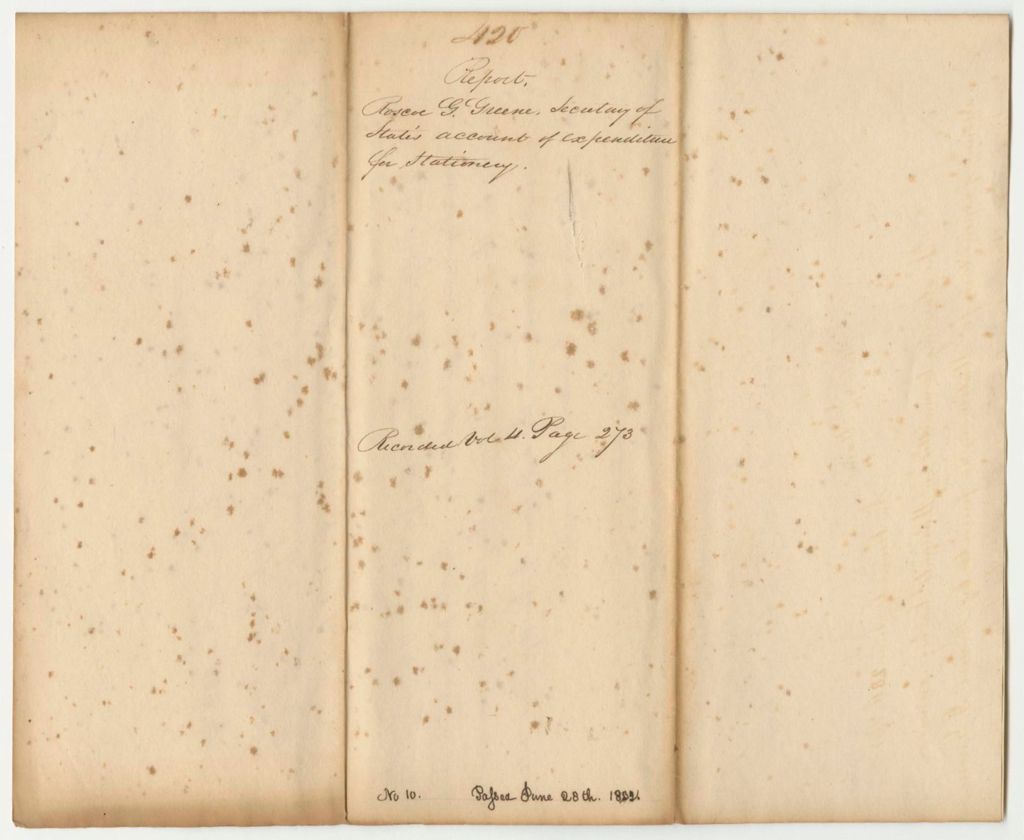 420
Report.
Roscoe G. Greene, Secretary of
State's account of expenditure
for Stationery.
Recorded Vol. 4. Page 273
No 10. Passed June 28th. 1832.